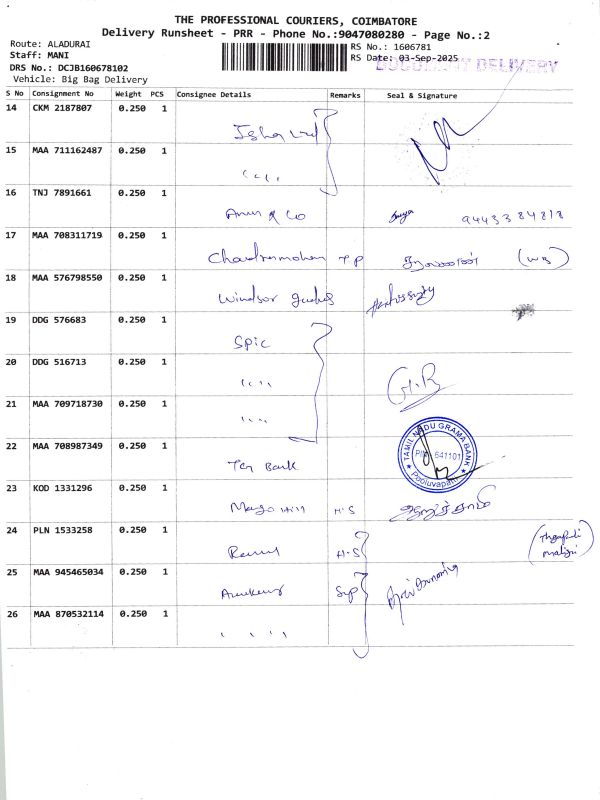 THE PROFESSIONAL COURIERS, COIMBATORE
Delivery Runsheet - PRR - Phone No.:9047080280 - Page No.:2
Route: ALADURAI
Staff: MANI
DRS No.: DCJB160678102
Vehicle: Big Bag Delivery
RS No.: 1606781
RS Date: 03-Sep-2025
DOCUMENT DELIVERY
S No Consignment No Weight PCS Consignee Details Remarks Seal & Signature
14 CKM 2187807 0.250 1
15 MAA 711162487 0.250 1 " "
16 TNJ 7891661 0.250 1 Arun & Co 9443384818
17 MAA 708311719 0.250 1 Chandramohan T P
18 MAA 576798550 0.250 1 Windsor
19 DDG 576683 0.250 1 Spic
20 DDG 516713 0.250 1 " "
21 MAA 709718730 0.250 1 " "
22 MAA 708987349 0.250 1 Bank TAMIL NADU GRAMA BANK PIN 641101 Pooluvapatti
23 KOD 1331296 0.250 1 H.S
24 PLN 1533258 0.250 1 H-S
25 MAA 945465034 0.250 1
26 MAA 870532114 0.250 1 " "